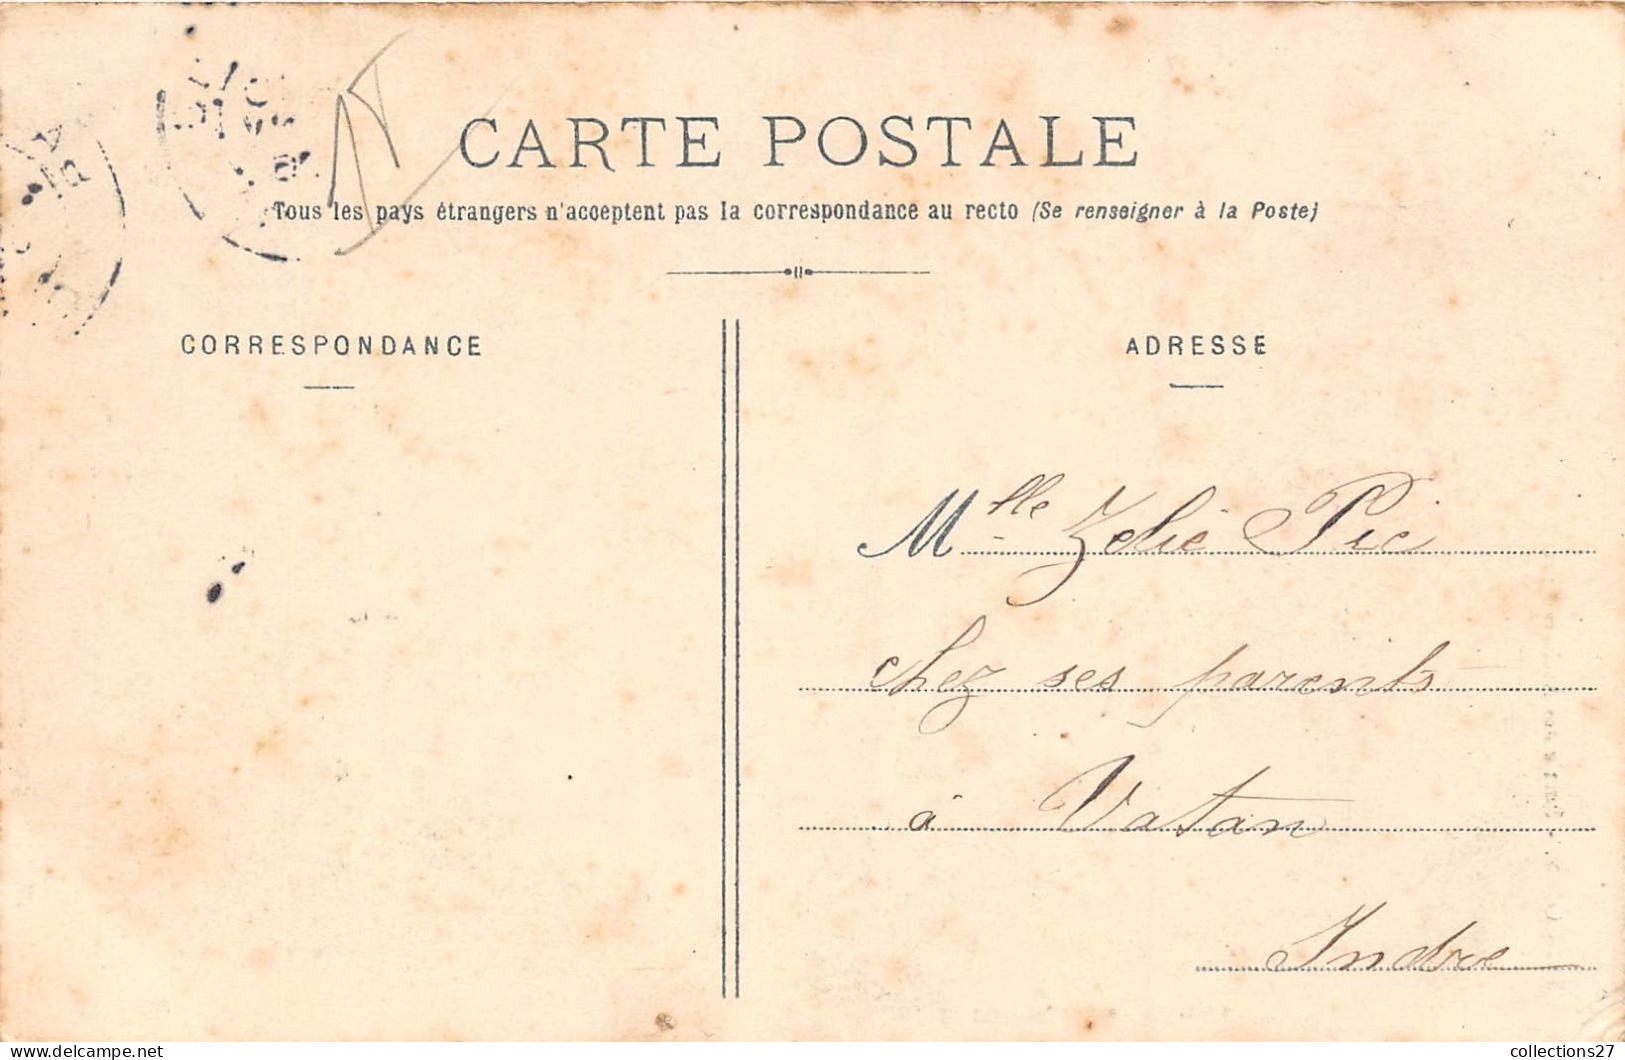 CARTE POSTALE
Tous les pays étrangers n'acceptent pas la correspondance au recto (Se renseigner à la Poste)
CORRESPONDANCE
ADRESSE
Mlle Zelie Pic
chez ses parents
à Vatan
Indre
collections27